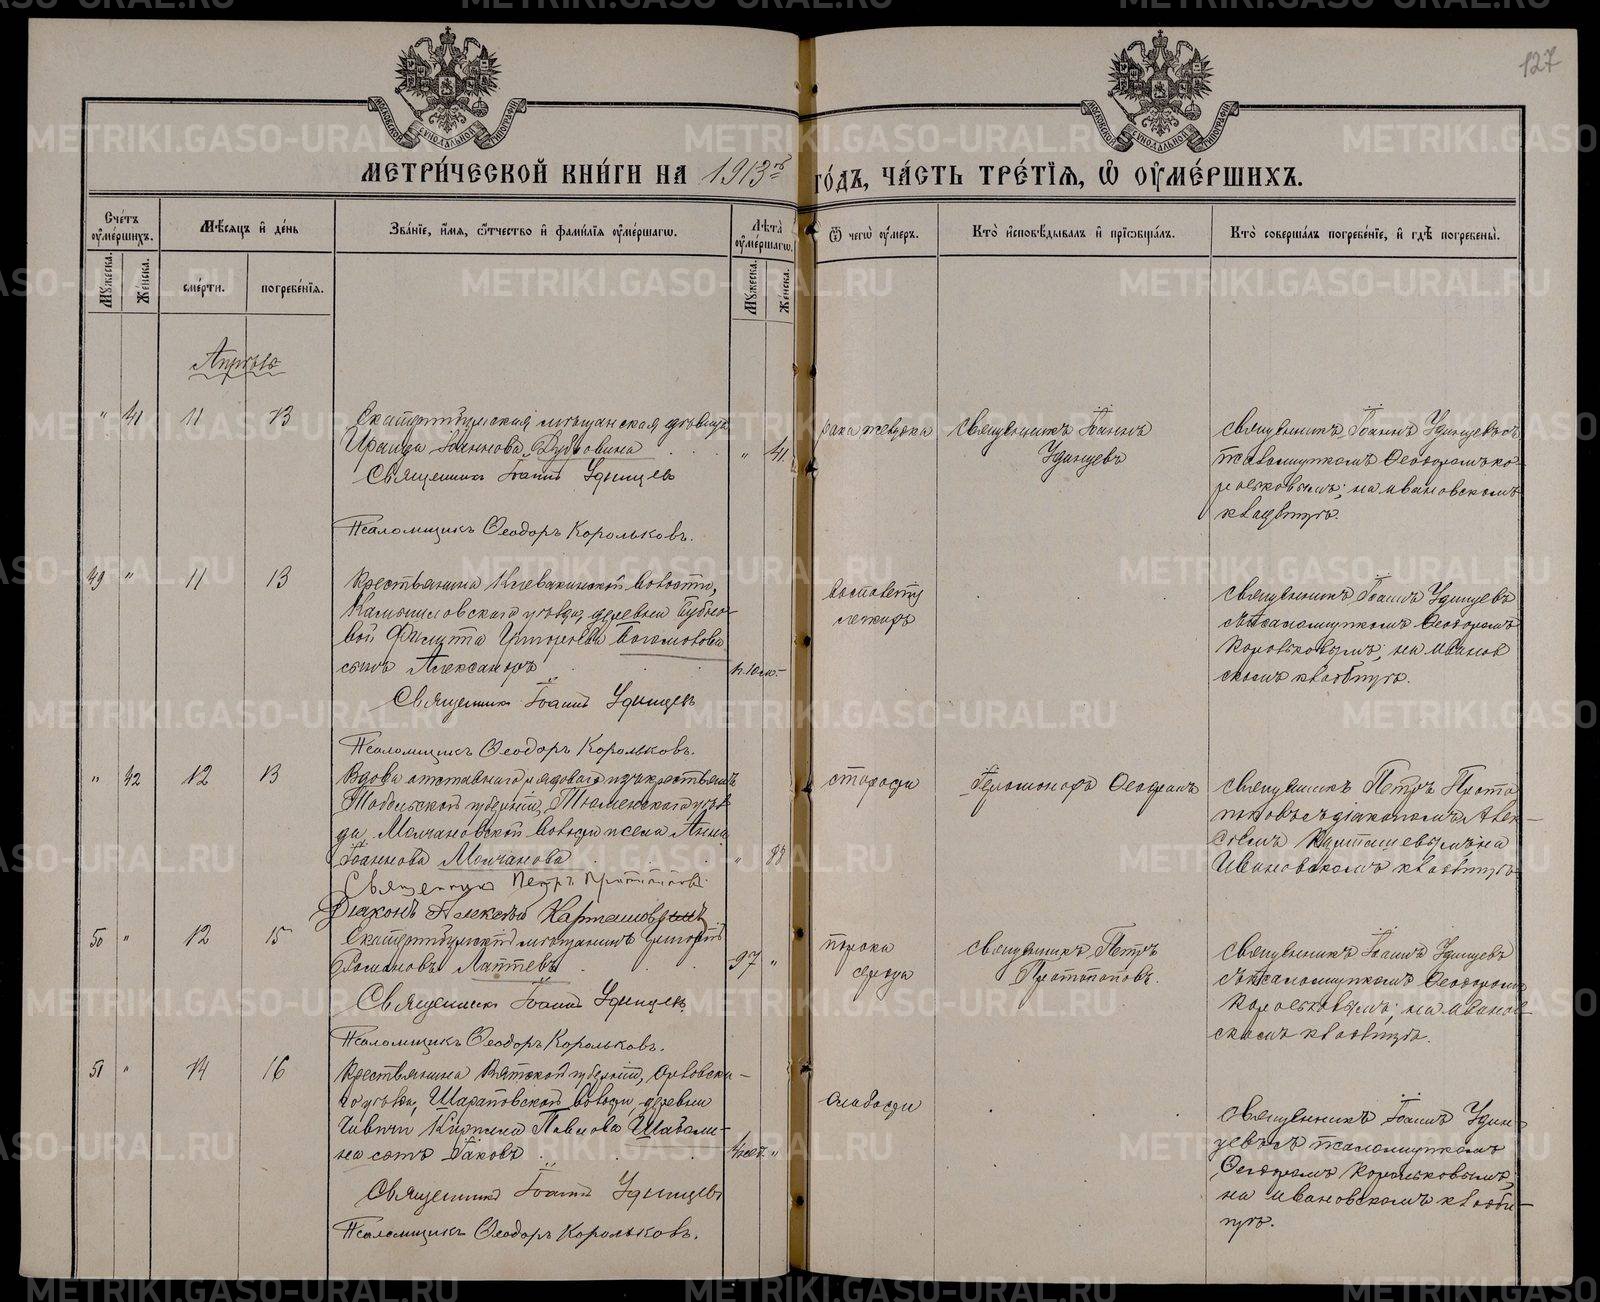 127
МЕТРИ́ЧЕСКОЙ КНИ́ГИ НА 1913й ГО́ДЪ, ЧА́СТЬ ТРЕ́ТІѦ, Ѽ ОУ҆МЕ́РШИХЪ.
Счетъ оумершихъ.
Мѣсяцъ и день
Званіе, имя, отчество и фамилія оумершагѡ.
Лѣта оумершагѡ.
Ѿ чегѡ оумеръ.
Кто исповѣдывалъ и пріѡбщалъ.
Кто совершалъ погребеніе, и гдѣ погребены.
Мужеска.
Женска.
смерти.
погребенія.
Мужеска.
Женска.
Апрѣль
" 41 11 13
Екатеринбургская мѣщанская дѣвица
Ираида Іоаннова Дубровина " 41.
Священникъ Іоаннъ Удинцевъ
Псаломщикъ Ѳеодоръ Корольковъ.
рака желудка
священникъ Іоаннъ
Удинцевъ
священникъ Іоаннъ Удинцевъ съ
псаломщикомъ Ѳеодоромъ Ко-
рольковымъ; на Ивановскомъ
кладбищѣ.
49 " 11 13
Крестьянина Клевакинской волости,
Камышловскаго уѣзда, деревни Бубно-
вой Филиппа Григорьева Богомолова
сынъ Александръ
Священникъ Іоаннъ Удинцевъ
Псаломщикъ Ѳеодоръ Корольковъ.
воспаленія
легкихъ
священникъ Іоаннъ Удинцевъ
съ псаломщикомъ Ѳеодоромъ
Корольковымъ; на Иванов
скомъ кладбищѣ.
" 42 12 13
Вдова отставнаго рядоваго изъ крестьянъ
Тобольской губерніи, Тюменскаго уѣз
да, Молчановской волости и села Анна
Іоаннова Молчанова " 83
Священникъ Петръ Протопоповъ
Діаконъ Алексѣй Карташевъ
старости
Іеромонахъ Ѳеофанъ
священникъ Петръ Прото
поповъ съ діакономъ Алек-
сѣемъ Карташевымъ на
Ивановскомъ кладбищѣ
50 " 12 15
Екатеринбургскій мѣщанинъ Григорій
Романовъ Лаптевъ 37 "
Священникъ Іоаннъ Удинцевъ
Псаломщикъ Ѳеодоръ Корольковъ.
порока
сердца
священникъ Петръ
Протопоповъ.
священникъ Іоаннъ Удинцевъ
съ псаломщикомъ Ѳеодоромъ
Корольковымъ; на Иванов-
скомъ кладбищѣ.
51 " 14 16
Крестьянина Вятской губерніи, Орловска-
го уѣзда, Шараповской волости, деревни
Кирилла Павлова Шабали-
на сынъ Іаковъ "
Священникъ Іоаннъ Удинцевъ
Псаломщикъ Ѳеодоръ Корольковъ.
слабости
священникъ Іоаннъ Удин-
цевъ съ псаломщикомъ
Ѳеодоромъ Корольковымъ;
на Ивановскомъ кладби-
щѣ.
METRIKI.GASO-URAL.RU